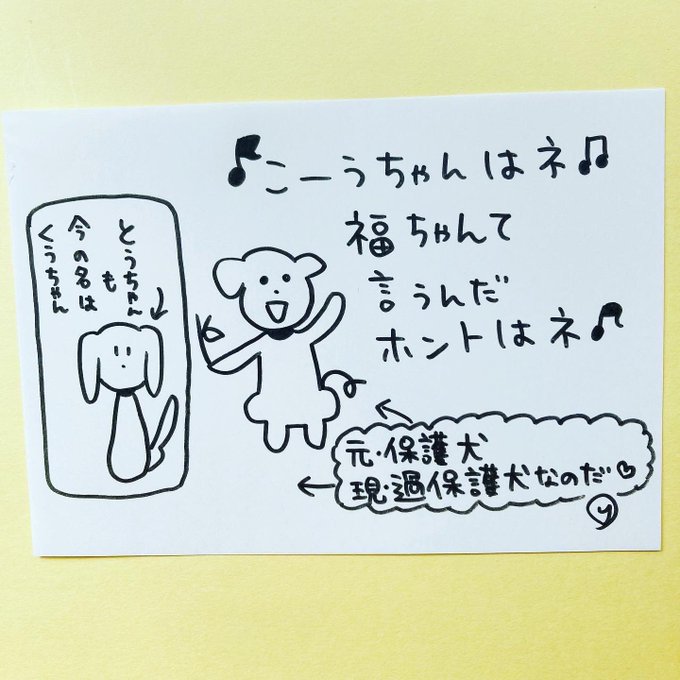 ♪こーうちゃんはネ♫
福ちゃんて
言うんだ
ホントはネ♪
とうちゃん
も
今の名は
くうちゃん
元・保護犬
現・過保護犬なのだ♡
y